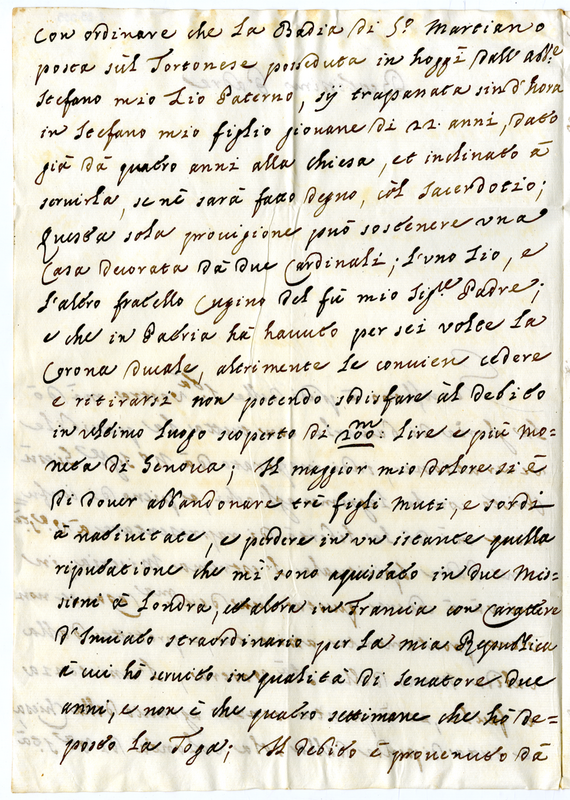 Con ordinare che La Badia di S.º Martiano
posta sül Tortonese posseduta in hoggi dall' abb.e
Stefano mio Zio Paterno, sij trapanata sin d'hora
in Stefano mio figlio giovane di 22 anni, dato
già dà quatro anni alla chiesa, et inclinato à
servirla, se nè sarà fatto degno, còl sacerdotio;
Questa sola provigione può sostenere una
Casa decorata dà due Cardinali; L'uno Zio, e
L'altro fratello Cugino del fù mio Sig.re Padre;
e che in Patria hà havuto per sei volte La
Corona ducale, altrimente Le convien cedere
e ritirarsi non potendo sodisfare àl debito
in ultimo Luogo scoperto di 100:m Lire e più mo=
neta di Genova; Il maggior mio dolore si è
di dover abbandonare trè figli muti, e sordi
à nativitate, e perdere in un istante quella
riputatione che mi sono aquistato in due Mis=
sioni à Londra, et altra in Francia con Carattere
d'Inviato straordinario per La mia Republica
à cui hò servito in qualità di Senatore due
anni, e non è che quatro settimane che hò de=
posto La Toga; Il debito è provenuto dà